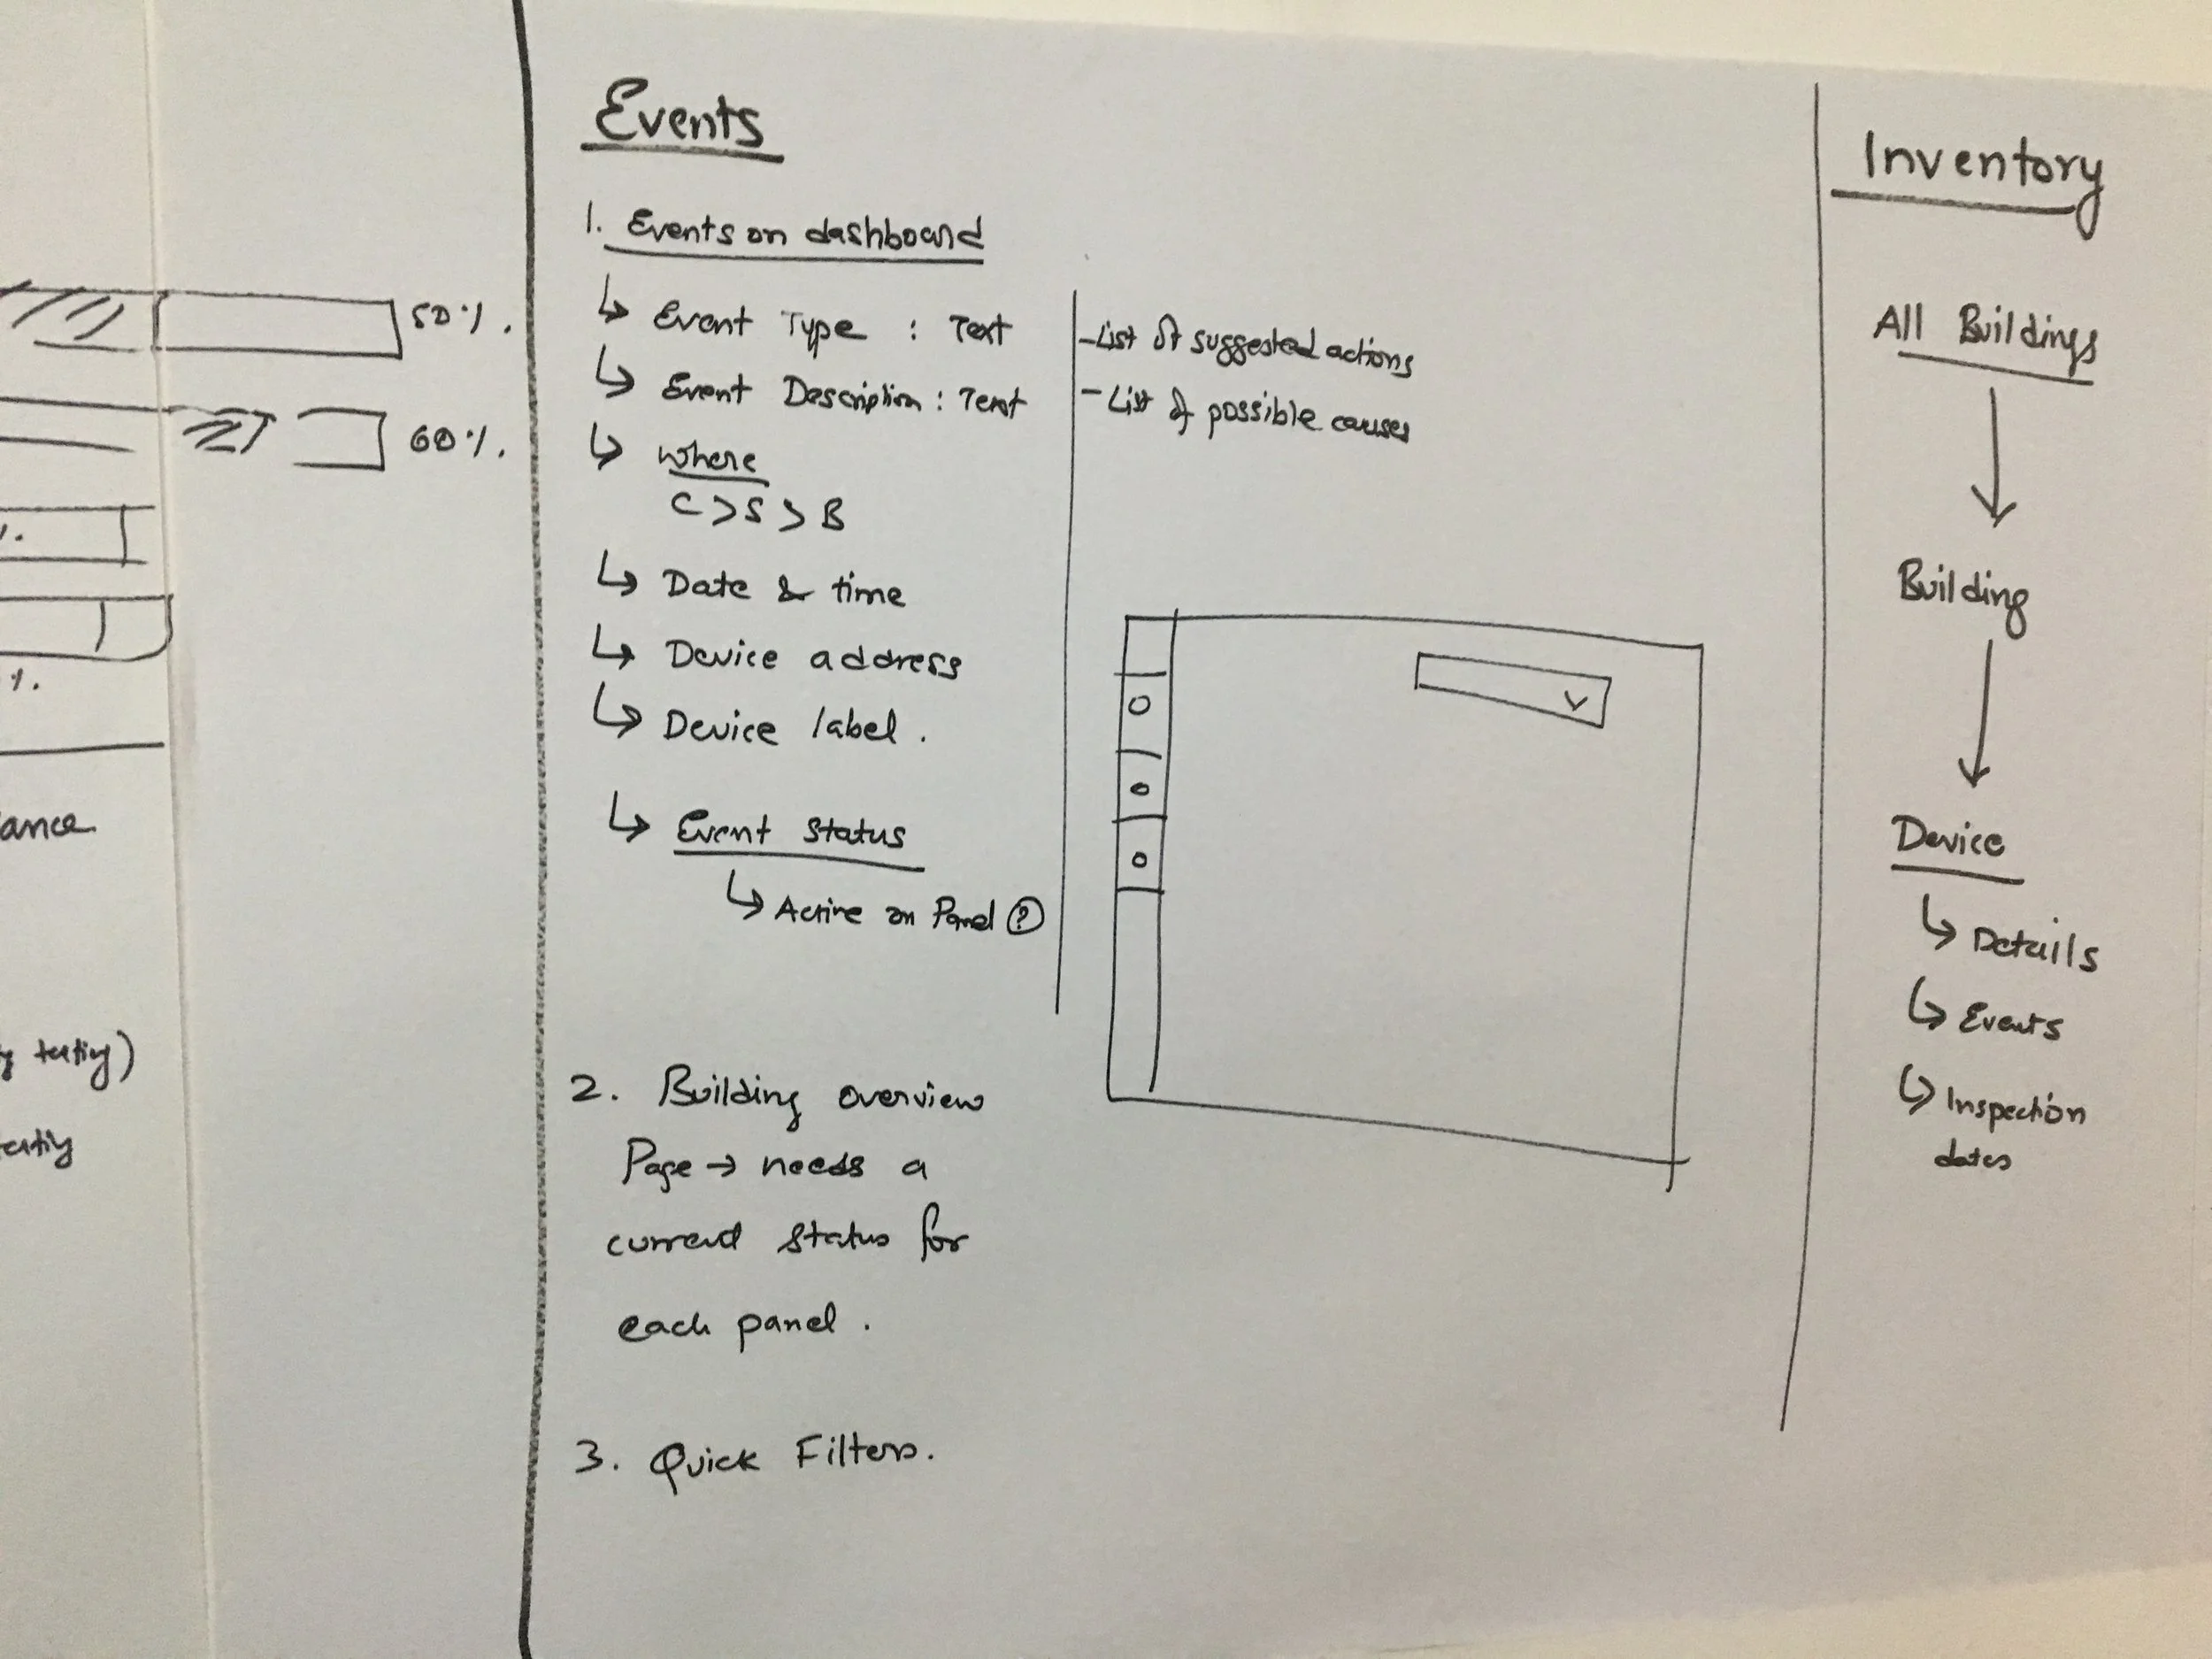 50%.
60%.
%.
%.
ance
testing)
testing
Events
1. Events on dashboard
↳ Event Type : Text
↳ Event Description : Text
↳ Where
C > S > B
↳ Date & time
↳ Device address
↳ Device label.
↳ Event Status
↳ Active on Panel ?
- List of suggested actions
- List of possible causes
2. Building overview
Page → needs a
current status for
each panel.
3. Quick Filters.
Inventory
All Buildings
Building
Device
↳ Details
↳ Events
↳ Inspection
dates